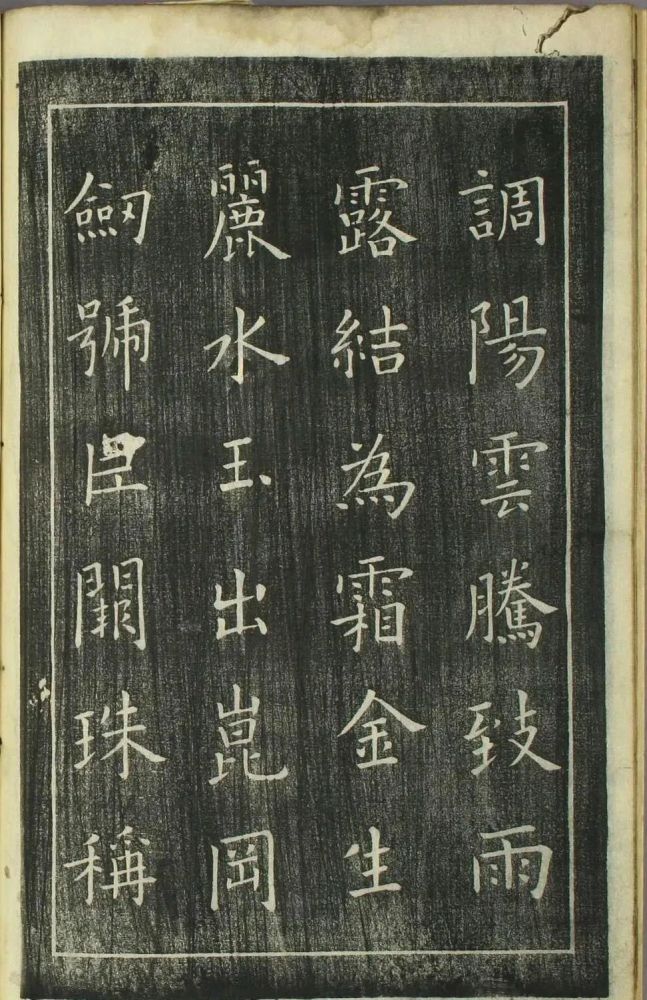 調陽雲騰致雨
露結為霜金生
麗水玉出崑岡
劒號巨闕珠稱